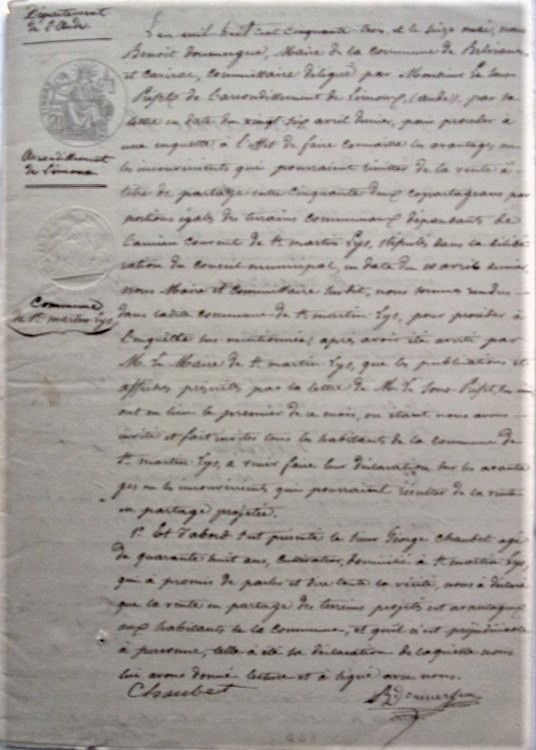 Département
de l'Aude
Arrondissement
de Limoux
Commune
de St. martin Lys
L'an mil huit cent cinquante trois, et le seize mai, nous
Benoit doumergue, Maire de la commune de Belvianes
et cavirac, commissaire délégué par Monsieur le Sous
Préfet de l'arrondissement de Limoux, (aude), par sa
lettre en date du vingt six avril dernier, pour procéder à
une enquette, à l'effet de faire connaitre les avantages ou
les inconvénients qui pourraient résulter de la vente à
titre de partage entre cinquante deux copartageans par
portions égales des terrains communaux dépendants de
l'ancien couvent de St. martin Lys, stipulés dans la délibé
ration du conseil municipal, en date du avril dernier,
nous Maire et commissaire susdit, nous sommes rendus
dans ladite commune de St. martin Lys, pour procéder à
l'enquête sus-mentionnée; après avoir été averti par
M. le Maire de St. martin Lys, que les publications et
affiches prescrites par la lettre de Mr. le Sous-Préfet,
ont eu lieu le premier de ce mois, ou étant nous avons
invité et fait inviter tous les habitants de la commune de
St. martin-Lys, a venir faire leur déclaration sur les avanta
ges ou les inconvénients qui pourraient résulter de la vente
en partage projetée.
1°. Et d'abord s'est présenté le sieur George chaubet agé
de quarante huit ans, cultivateur, domicilié à St. martin Lys,
qui à promis de parler et dire toute la vérité, nous à déclaré
que la vente en partage des terreins projetés est avantageux
aux habitants de la commune, et qu'il n'est préjudiciable
à personne, telle à été sa déclaration de laquelle nous
lui avons donné lecture et à signé avec nous.
Chaubet